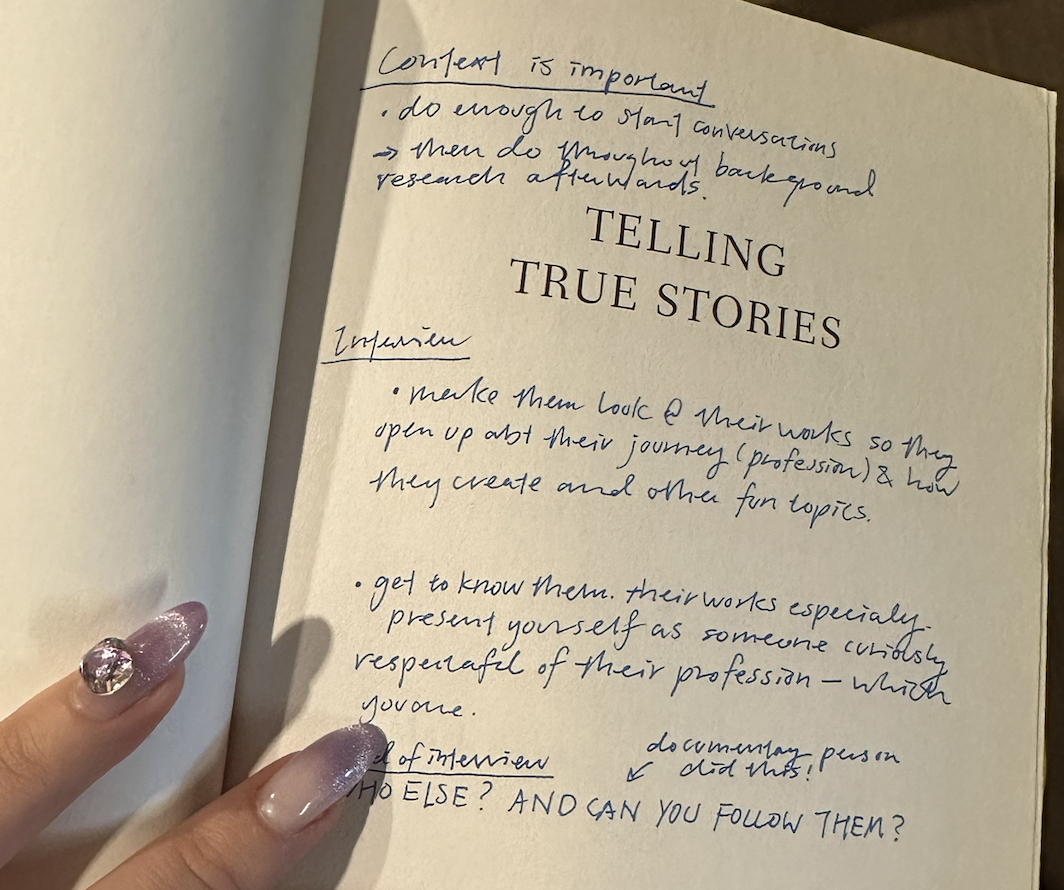 Context is important
• do enough to start conversations
→ then do throughout background
research afterwards.
TELLING
TRUE STORIES
Interview
• make them look @ their works so they
open up abt their journey (profession) & how
they create and other fun topics.
• get to know them. their works especialy.
present yourself as someone curiously
respectafel of their profession – which
you are.
d of interview
documentary person
did this!
↙
HO ELSE? AND CAN YOU FOLLOW THEM?